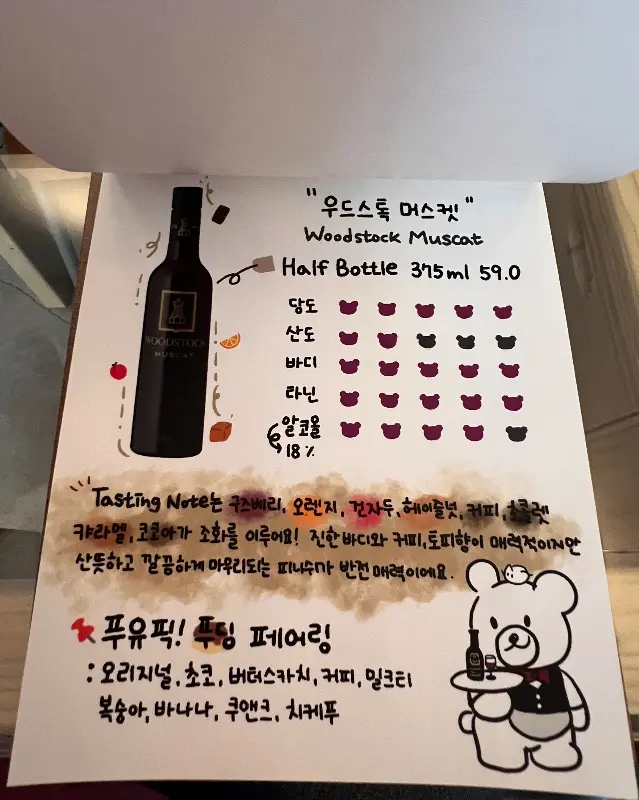 "우드스톡 머스켓"
Woodstock Muscat
Half Bottle 375ml 59.0
당도
산도
바디
타닌
알코올
18%
WOODSTOCK
MUSCAT
Tasting Note는 구즈베리, 오렌지, 건자두, 헤이즐넛, 커피, 초콜렛
캬라멜, 코코아가 조화를 이루어요! 진한 바디와 커피, 토피향이 매력적이지만
산뜻하고 깔끔하게 마무리되는 피니쉬가 반전 매력이에요.
푸유픽! 푸딩 페어링
: 오리지널, 초코, 버터스카치, 커피, 밀크티
복숭아, 바나나, 쿠앤크, 치케푸